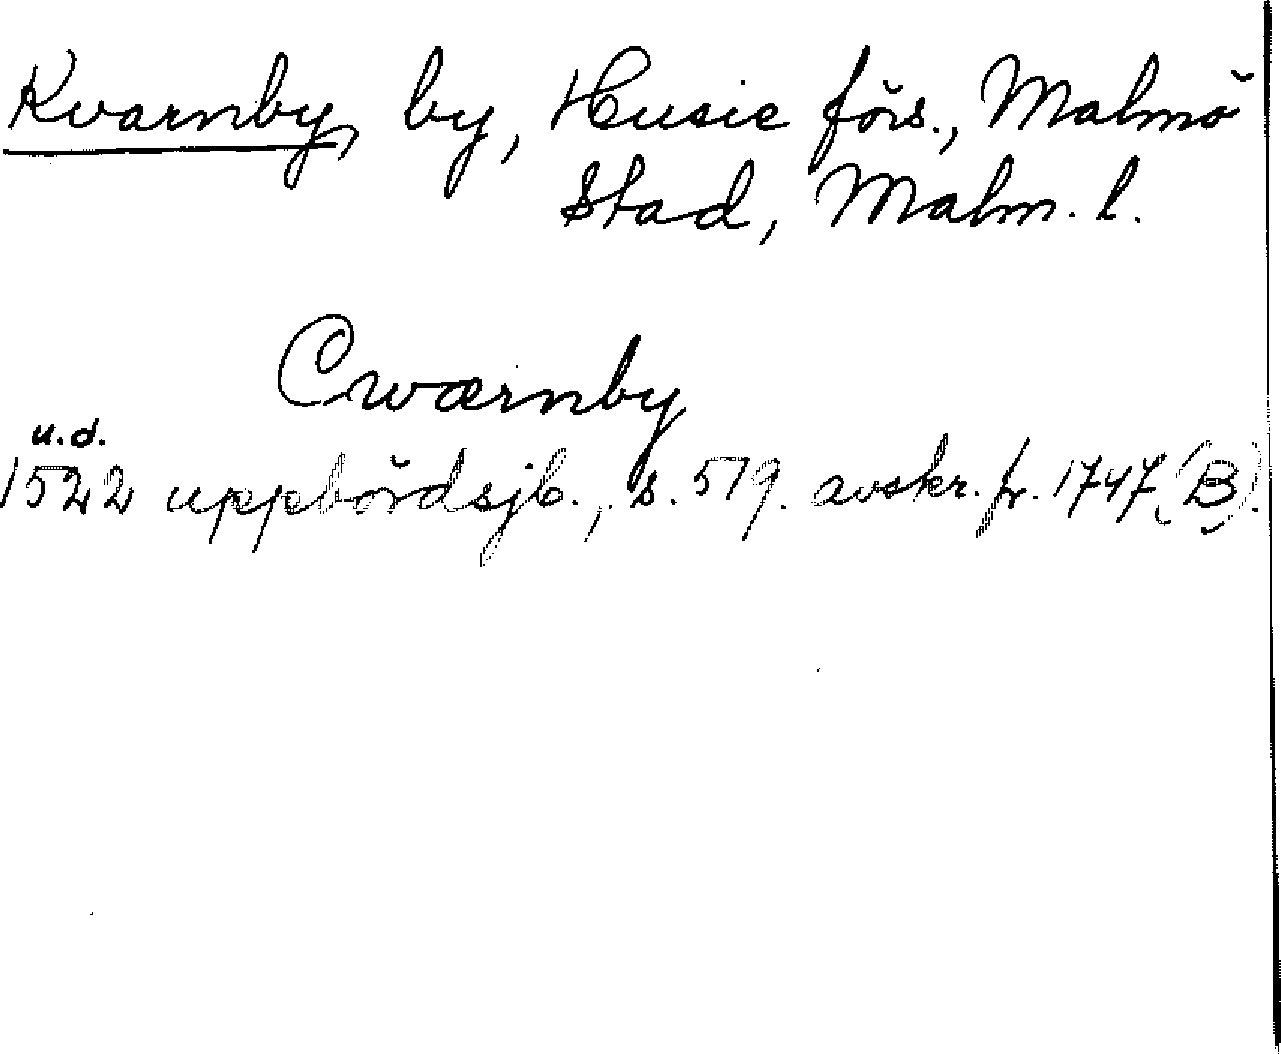 Kvarnby, by, Husie förs., Malmö
Stad, Malm. l.
Cwærnby
u.d.
1522 uppbördsjb., s. 519. avskr. fr. 1747 (B).